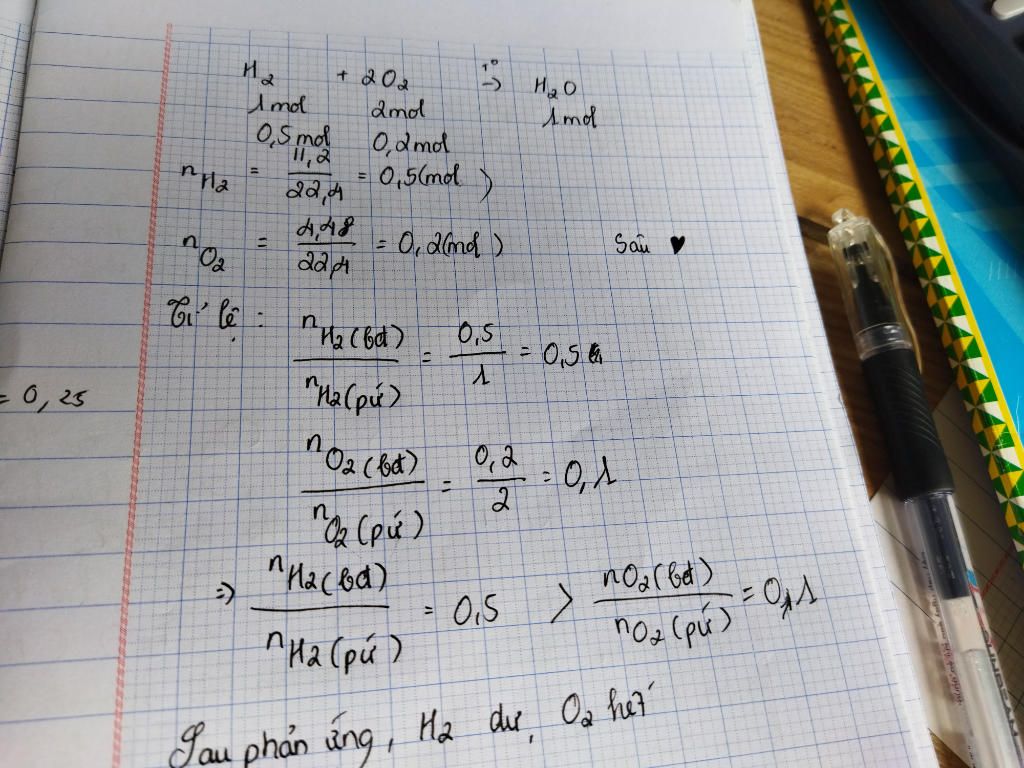 H₂ + 2O₂ t° → H₂O
1mol 2mol 1mol
0,5mol 0,2mol
nH₂ = 11,2/22,4 = 0,5(mol)
nO₂ = 4,48/22,4 = 0,2(mol) Sâu ♥
Tỉ lệ: nH₂(bđ)/nH₂(pứ) = 0,5/1 = 0,5
= 0,25
nO₂(bđ)/nO₂(pứ) = 0,2/2 = 0,1
=> nH₂(bđ)/nH₂(pứ) = 0,5 > nO₂(bđ)/nO₂(pứ) = 0,1
Sau phản ứng, H₂ dư, O₂ hết